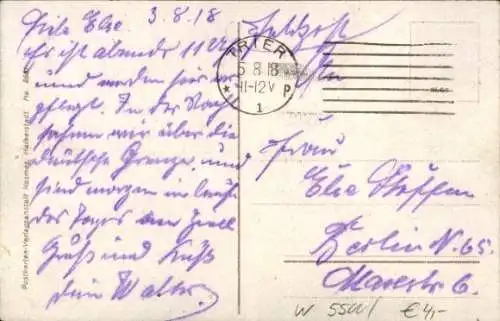 3.8.18
Feldpost
Liebe Else
Es ist abends 11 Uhr
und werden hier ver
pflegt. In der Nacht
fahren wir über die
deutsche Grenze und
sind morgen im Laufe
des Tages am Ziel
Gruß und Kuß
dein Walter.
TRIER
5 8 18
11-12V
1
Frau
Else Steffen
Berlin N. 65.
6.
W 5500/ €4,-
Postkarten-Verlagsanstalt Halberstadt